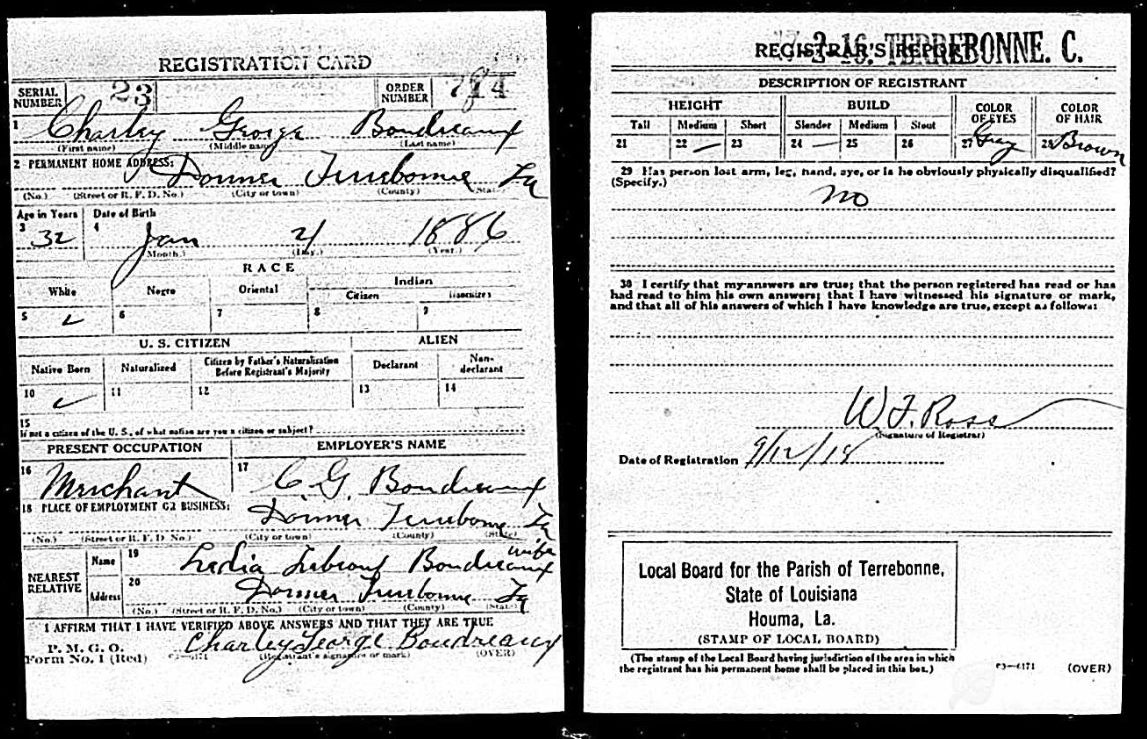 REGISTRATION CARD
SERIAL NUMBER 23 ORDER NUMBER
1 Charley George Boudreaux
(First name) (Middle name) (Last name)
2 PERMANENT HOME ADDRESS:
Donner Terrebonne La
(No.) (Street or R. F. D. No.) (City or town) (County) (State)
Age in Years Date of Birth
3 32 4 Jan 21 1886
(Month.) (Day.) (Year.)
RACE
White Negro Oriental Indian
Citizen Noncitizen
5 ✓ 6 7 8 9
U. S. CITIZEN ALIEN
Native Born Naturalized Citizen by Father's Naturalization Before Registrant's Majority Declarant Non-declarant
10 ✓ 11 12 13 14
15
If not a citizen of the U. S., of what nation are you a citizen or subject?
PRESENT OCCUPATION EMPLOYER'S NAME
16 Merchant 17 C. G. Boudreaux
18 PLACE OF EMPLOYMENT OR BUSINESS:
Donner Terrebonne La
(No.) (Street or R. F. D. No.) (City or town) (County) (State)
NEAREST RELATIVE Name 19 Lydia Boudreaux wife
Address 20 Donner Terrebonne La
(No.) (Street or R. F. D. No.) (City or town) (County) (State)
I AFFIRM THAT I HAVE VERIFIED ABOVE ANSWERS AND THAT THEY ARE TRUE
P. M. G. O.
Form No. 1 (Red) 03-6171 Charley George Boudreaux
(Registrant's signature or mark) (OVER)
REGISTRAR'S REPORT
17-3-16. TERREBONNE. C.
DESCRIPTION OF REGISTRANT
HEIGHT BUILD COLOR OF EYES COLOR OF HAIR
Tall Medium Short Slender Medium Stout
21 22 — 23 24 — 25 26 27 Gray 28 Brown
29 Has person lost arm, leg, hand, eye, or is he obviously physically disqualified?
(Specify.)
no
30 I certify that my answers are true; that the person registered has read or has
had read to him his own answers; that I have witnessed his signature or mark,
and that all of his answers of which I have knowledge are true, except as follows:
W. F. Ross
(Signature of Registrar)
Date of Registration 9/12/18
Local Board for the Parish of Terrebonne,
State of Louisiana
Houma, La.
(STAMP OF LOCAL BOARD)
(The stamp of the Local Board having jurisdiction of the area in which
the registrant has his permanent home shall be placed in this box.)
03-6171 (OVER)